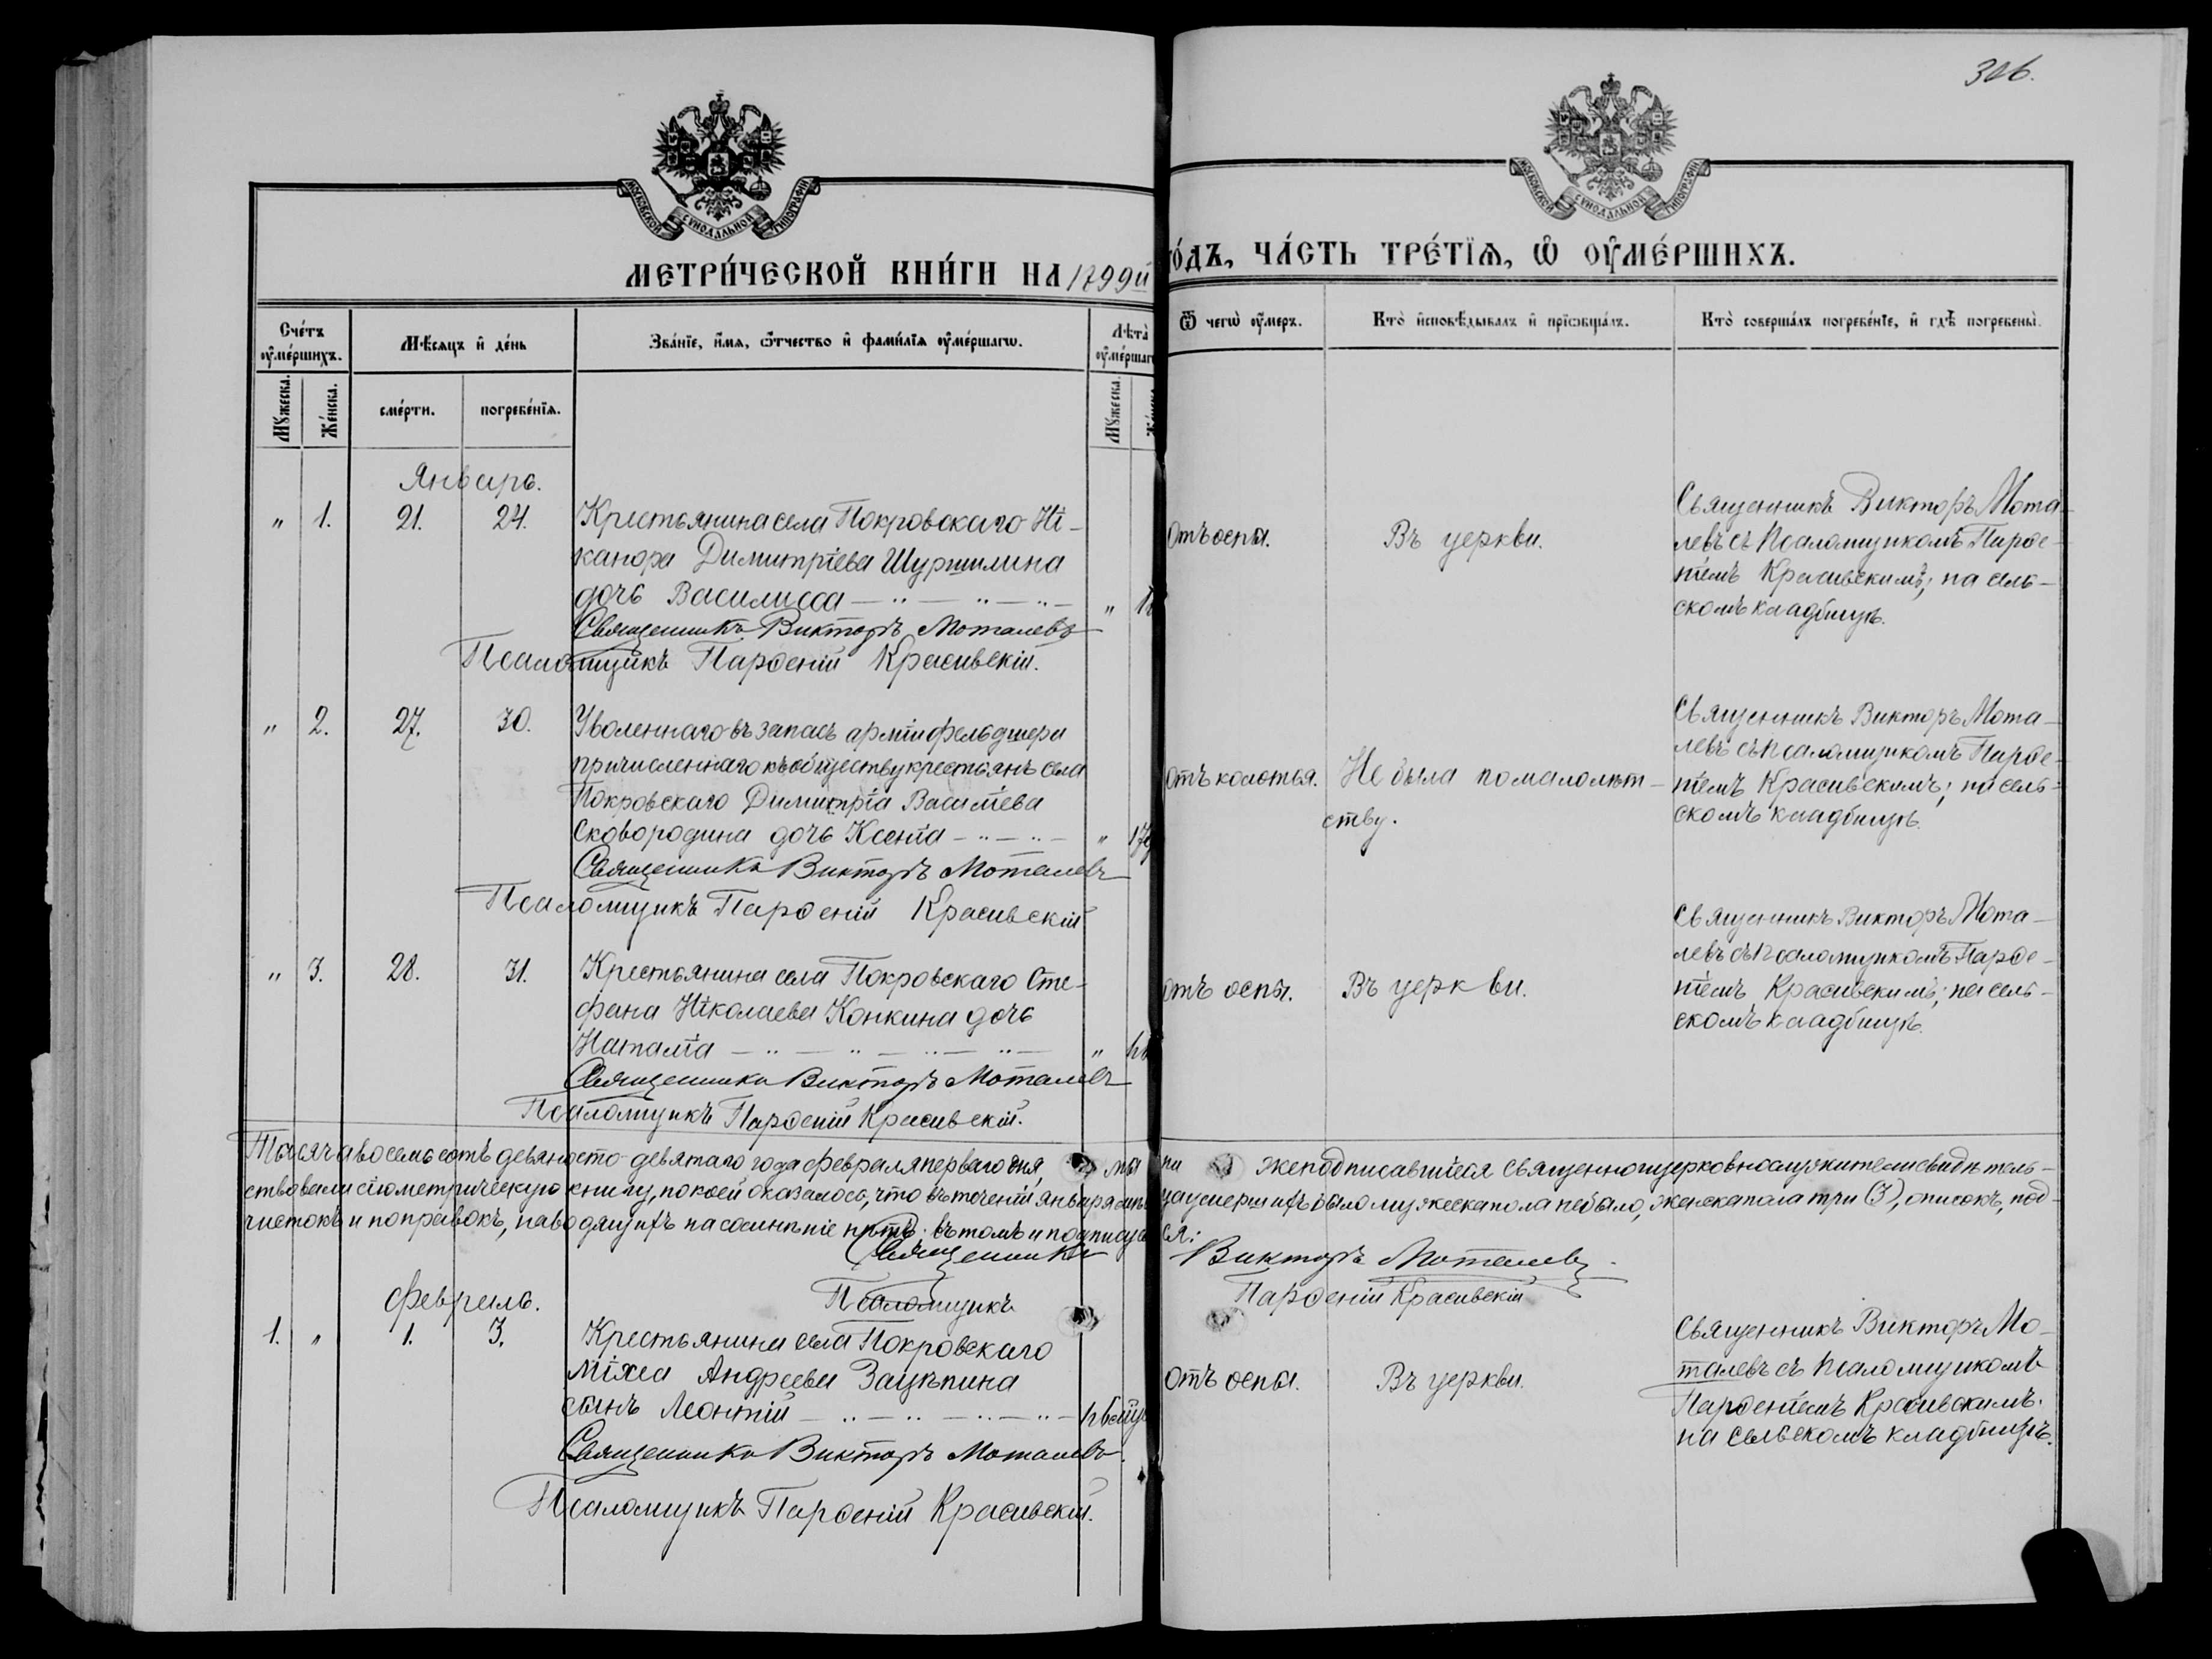 306.
МОСКОВСКОЙ СУНОДАЛЬНОЙ ТИПОГРАФІИ
МОСКОВСКОЙ СУНОДАЛЬНОЙ ТИПОГРАФІИ
МЕТРИ́ЧЕСКОЙ КНИ́ГИ НА 1899й
го́дъ, ЧА́СТЬ ТРЕ́ТЇѦ, Ѡ҆ ОУ҆МЕ́РШИХЪ.
Сче́тъ оу҆ме́ршихъ.
Мꙋ́жеска.
Же́нска.
Мѣ́сѧцъ и҆ де́нь
сме́рти.
погребе́нїѧ.
Зва́нїе, и҆́мѧ, ѻ҆́тчество и҆ фами́лїѧ оу҆ме́ршагѡ.
Лѣта̀
оу҆ме́ршаг
Мꙋ́жеска.
Ѿ чегѡ̀ оу҆́меръ.
Кто̀ и҆сповѣ́дывалъ и҆ прїѡбща́лъ.
Кто̀ соверша́лъ погребе́нїе, и҆ гдѣ̀ погребены̀.
Январь.
" 1. 21. 24. Крестьянина села Покровскаго Ні-
канора Димитріева Шуршилина
дочь Василисса — " — " — " — "
Священникъ Викторъ Моталевъ
Псаломщикъ Парѳеній Красивскій.
отъ оспы. Въ церкви.
Священникъ Викторъ Мота-
левъ съ псаломщикомъ Парѳе-
ніемъ Красивскимъ; на сель-
скомъ кладбищѣ.
" 2. 27. 30. Уволеннаго въ запасъ арміи фельдшера
причисленнаго къ обществу крестьянъ села
Покровскаго Димитрія Василіева
Сковородина дочь Ксенія — " — " — "
Священникъ Викторъ Моталевъ
Псаломщикъ Парѳеній Красивскій
отъ колотья. Не была по малолѣт-
ству.
Священникъ Викторъ Мота-
левъ съ псаломщикомъ Парѳе-
ніемъ Красивскимъ; на сель-
скомъ кладбищѣ.
" 3. 28. 31. Крестьянина села Покровскаго Сте-
фана Ніколаева Конкина дочь
Наталія — " — " — " — " — "
Священникъ Викторъ Моталевъ
Псаломщикъ Парѳеній Красивскій.
отъ оспы. Въ церкви.
Священникъ Викторъ Мота-
левъ съ псаломщикомъ Парѳе-
ніемъ Красивскимъ; на сель-
скомъ кладбищѣ.
Тысяча восемьсотъ девяносто девятаго года февраля перваго дня, мы ни жеподписавшіеся священноицерковнослужители свидѣтель-
ствовали сію метрическую книгу, по коей оказалось, что въ теченіи января умершихъ было мужеска пола не было, женска пола три (3), описокъ, под-
чистокъ и поправокъ, наводящихъ на сомнѣніе нѣтъ: въ томъ и подписуемся:
Священникъ Викторъ Моталевъ.
Псаломщикъ Парѳеній Красивскій
Февраль.
1. " 1. 3. Крестьянина села Покровскаго
Міхея Андреева Зацѣпина
сынъ Леонтій — " — " — " — " —
Священникъ Викторъ Моталевъ.
Псаломщикъ Парѳеній Красивскій.
отъ оспы. Въ церкви.
Священникъ Викторъ Мо-
талевъ съ псаломщикомъ
Парѳеніемъ Красивскимъ.
на сельскомъ кладбищѣ.